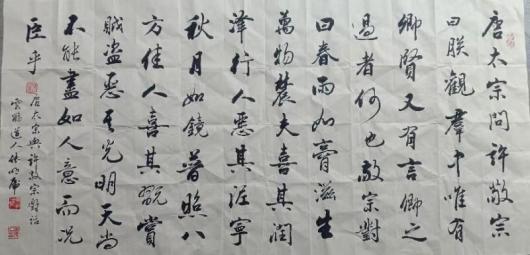 唐太宗問許敬宗
曰朕觀群中唯有
卿賢又有言卿之
過者何也敬宗對
曰春雨如膏滋生
萬物農夫喜其潤
澤行人惡其泥寧
秋月如鏡普照八
方佳人喜其翫賞
賊盜惡其光明天尚
不能盡如人意而況
臣乎
唐太宗與許敬宗對話
道人林